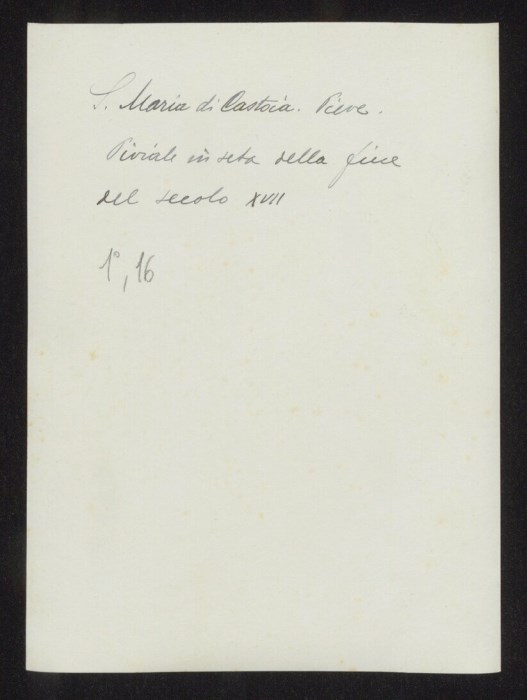 S. Maria di Castoia. Pieve.
Piviale in seta della fine
del secolo XVII
1°, 16